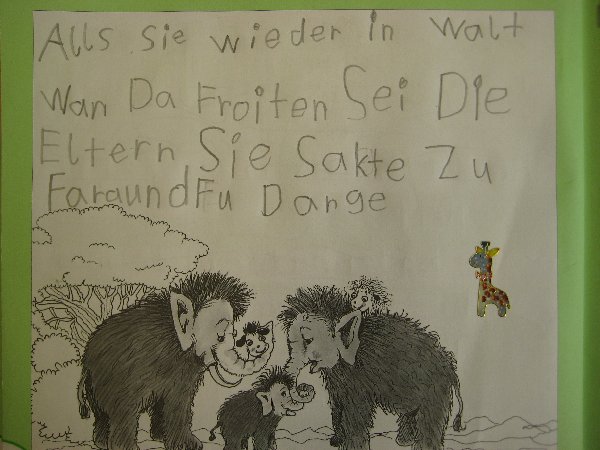 Alls sie wieder in Walt
Wan Da Froiten Sei Die
Eltern Sie Sakte Zu
FaraundFu Dange